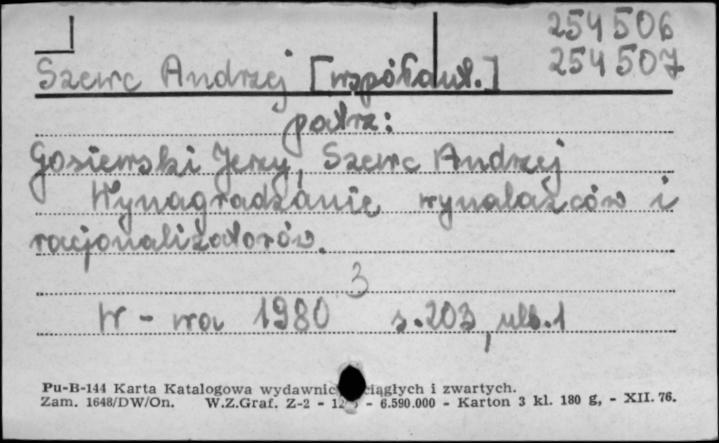 254506
254507
Szewc Andrzej [współaut.]
patrz:
Gosiewski Jerzy, Szewc Andrzej
Wynagradzanie wynalazców i
racjonalizatorów.
3
W-wa 1980 s.203, ulb.1
Pu-B-144 Karta Katalogowa wydawnic ciągłych i zwartych.
Zam. 1648/DW/On. W.Z.Graf. Z-2 - - 6.590.000 - Karton 3 kl. 180 g, - XII. 76.